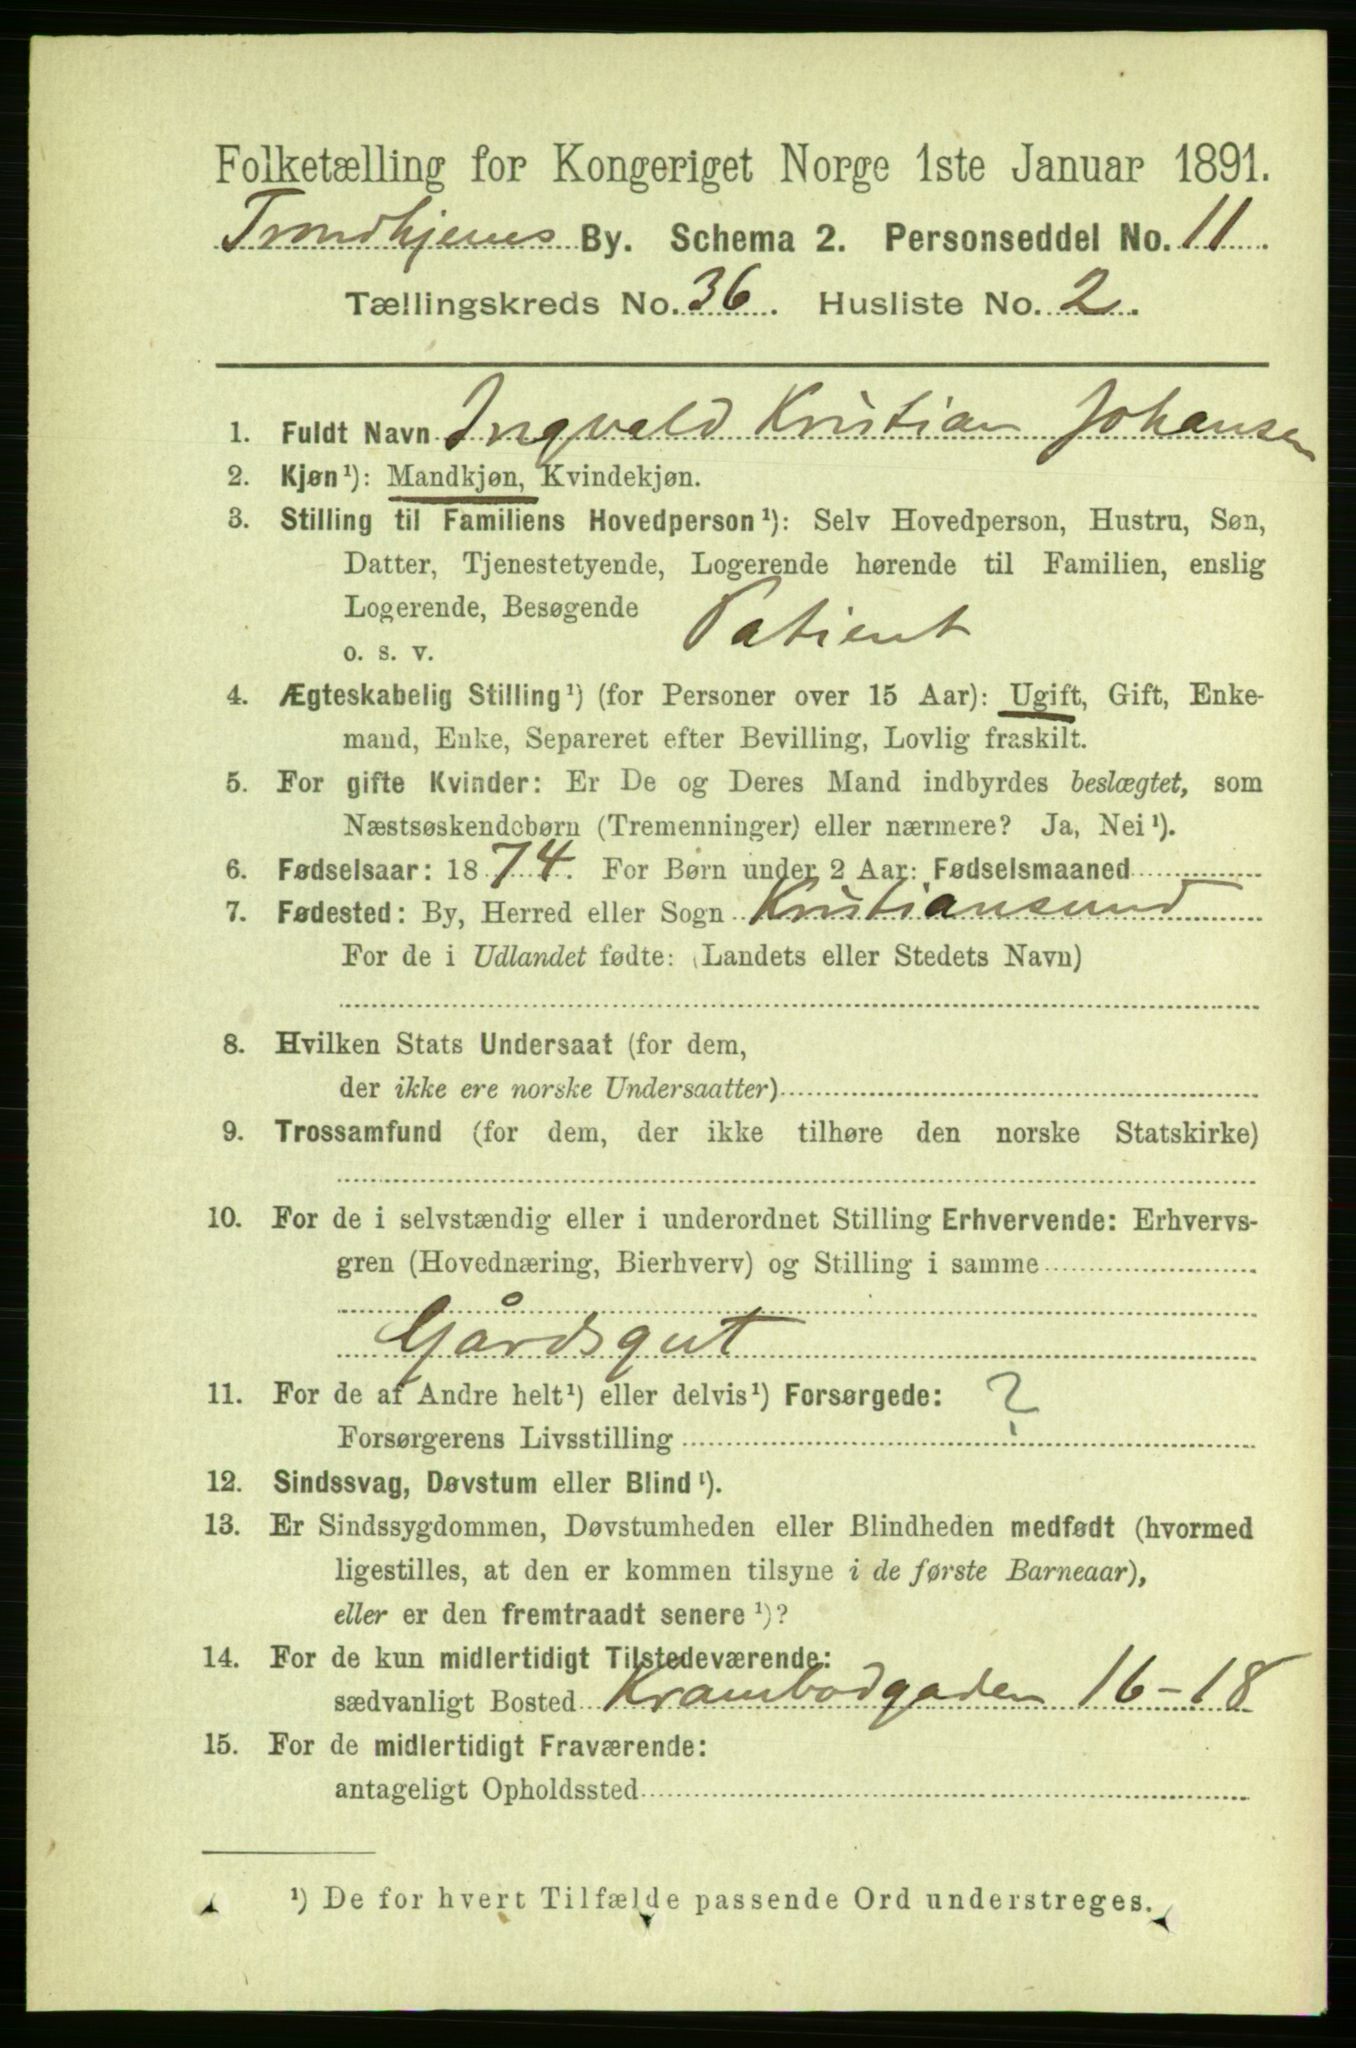 Folketælling for Kongeriget Norge 1ste Januar 1891.
Trondhjems By. Schema 2. Personseddel No. 11
Tællingskreds No. 36. Husliste No. 2.
1. Fuldt Navn Ingvald Kristian Johansen
2. Kjøn¹): Mandkjøn, Kvindekjøn.
3. Stilling til Familiens Hovedperson¹): Selv Hovedperson, Hustru, Søn,
Datter, Tjenestetyende, Logerende hørende til Familien, enslig
Logerende, Besøgende
o. s. v. Patient
4. Ægteskabelig Stilling¹) (for Personer over 15 Aar): Ugift, Gift, Enke-
mand, Enke, Separeret efter Bevilling, Lovlig fraskilt.
5. For gifte Kvinder: Er De og Deres Mand indbyrdes beslægtet, som
Næstsøskendebørn (Tremenninger) eller nærmere? Ja, Nei¹).
6. Fødselsaar: 1874. For Børn under 2 Aar: Fødselsmaaned
7. Fødested: By, Herred eller Sogn Kristiansund
For de i Udlandet fødte: (Landets eller Stedets Navn)
8. Hvilken Stats Undersaat (for dem,
der ikke ere norske Undersaatter)
9. Trossamfund (for dem, der ikke tilhøre den norske Statskirke)
10. For de i selvstændig eller i underordnet Stilling Erhvervende: Erhvervs-
gren (Hovednæring, Bierhverv) og Stilling i samme
Gårdsgut
11. For de af Andre helt¹) eller delvis¹) Forsørgede: ?
Forsørgerens Livsstilling
12. Sindssvag, Døvstum eller Blind¹).
13. Er Sindssygdommen, Døvstumheden eller Blindheden medfødt (hvormed
ligestilles, at den er kommen tilsyne i de første Barneaar),
eller er den fremtraadt senere¹)?
14. For de kun midlertidigt Tilstedeværende:
sædvanligt Bosted Krambodgaden 16-18
15. For de midlertidigt Fraværende:
antageligt Opholdssted
¹) De for hvert Tilfælde passende Ord understreges.